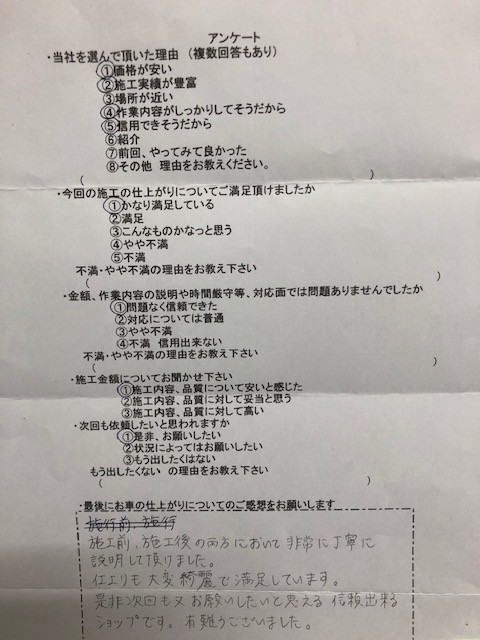 アンケート
・当社を選んで頂いた理由 (複数回答もあり)
①価格が安い
②施工実績が豊富
③場所が近い
④作業内容がしっかりしてそうだから
⑤信用できそうだから
⑥紹介
⑦前回、やってみて良かった
⑧その他 理由をお教えください。
( )
・今回の施工の仕上がりについてご満足頂けましたか
①かなり満足している
②満足
③こんなものかなっと思う
④やや不満
⑤不満
不満・やや不満の理由をお教え下さい
( )
・金額、作業内容の説明や時間厳守等、対応面では問題ありませんでしたか
①問題なく信頼できた
②対応については普通
③やや不満
④不満 信用出来ない
不満・やや不満の理由をお教え下さい
( )
・施工金額についてお聞かせ下さい
①施工内容、品質について安いと感じた
②施工内容、品質に対して妥当と思う
③施工内容、品質に対して高い
・次回も依頼したいと思われますか
①是非、お願いしたい
②状況によってはお願いしたい
③もう出したくはない
もう出したくない の理由をお教え下さい
( )
・最後にお車の仕上がりについてのご感想をお願いします
施行前、施行
施工前、施工後の両方において非常に丁寧に
説明して頂けました。
仕上りも大変綺麗で満足しています。
是非次回も又お願いしたいと思える信頼出来る
ショップです。有難うございました。